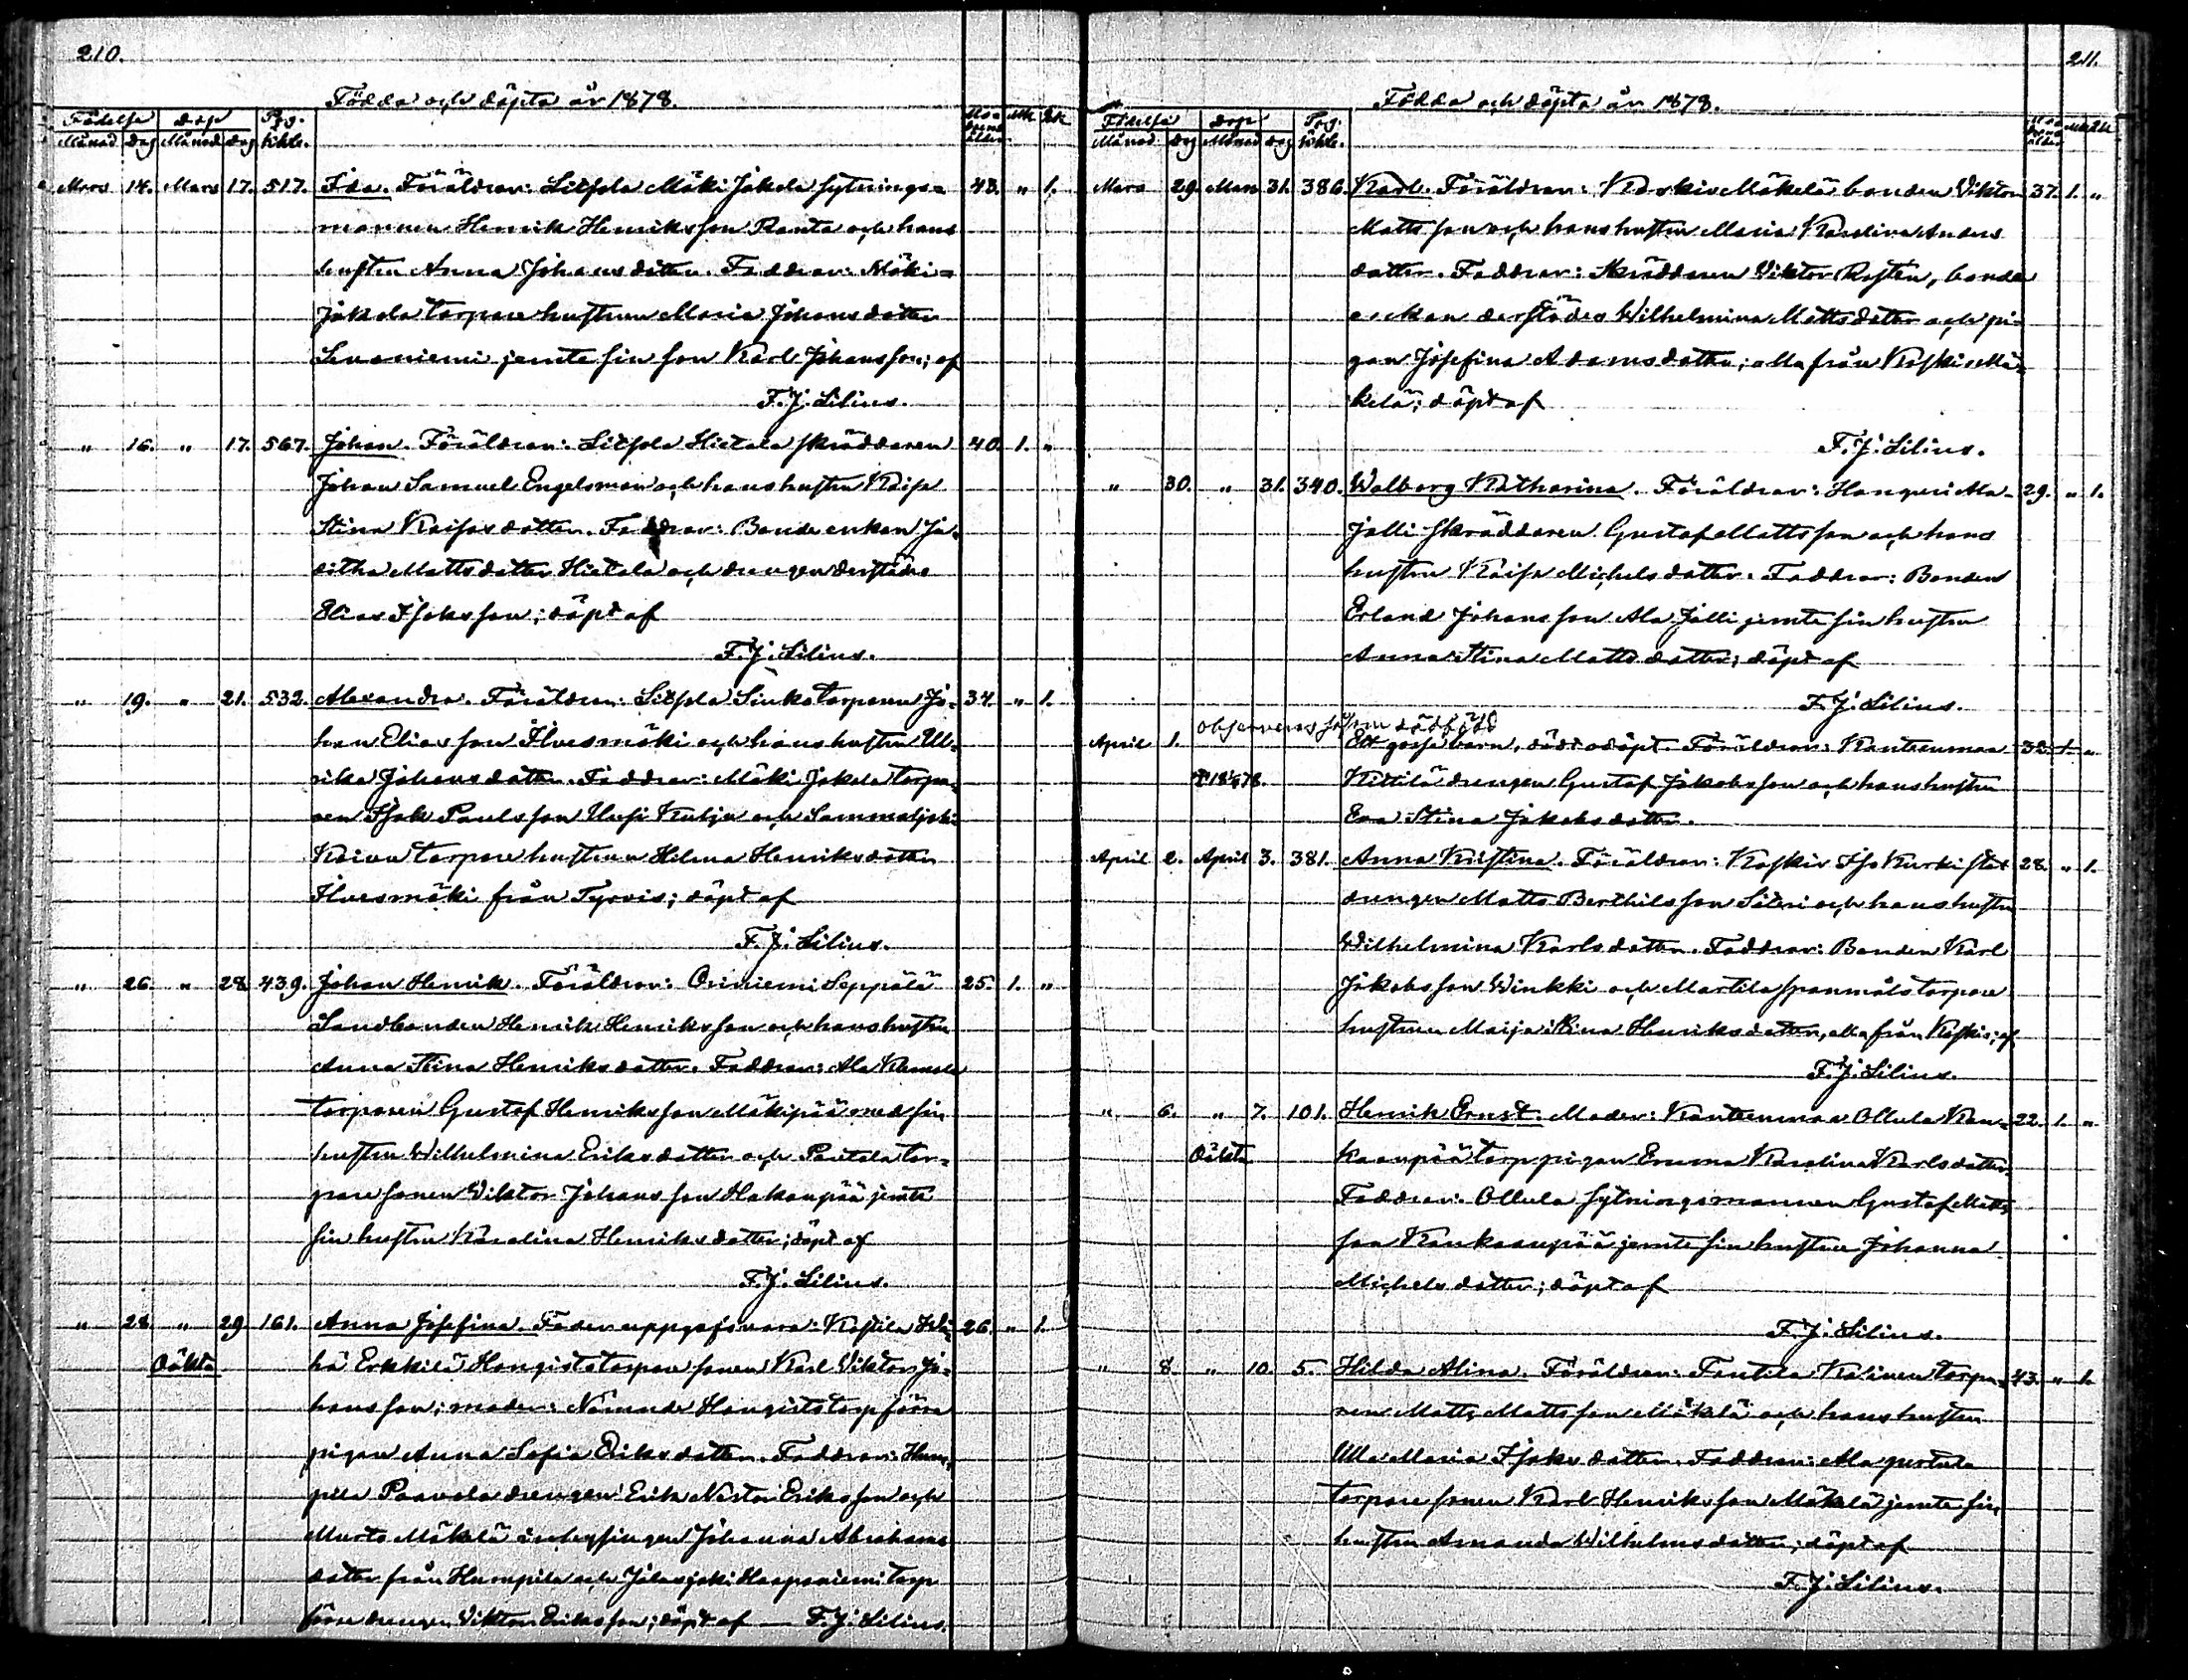 210.
Födda och döpta år 1878.
Födelse döp Pag.
Månad Dag Månad Dag
Mars 14. Mars 17. 517. Ida. Föräldrar: Liesola Mäki Jakola sytnings= 43. " 1.
mannen Henrik Henriksson Ranta och hans
hustru Anna Johansdotter. Faddrar: Mäki=
Jakola torpare hustrun Maria Johansdotter
jemte sin son Karl Johansson; af
F. J. Lilius.
" 16. " 17. 567. Johan. Föräldrar: Liesola Hietala skräddaren 40. 1. "
Johan Samuel Engelsman och hans hustru Kaisa
Stina Kaisasdotter. Faddrar: Bonde enkan Ju=
ditha Mattsdotter Hietala och drengen derstädes
Elias Isaksson; döpt af
F. J. Lilius.
" 19. " 21. 532. Alexandra. Föräldrar: Liesola torparen Jo= 34. " 1.
han Eliasson Ilvesmäki och hans hustru Ul=
rika Johansdotter. Faddrar: Mäki Jakola torpa=
ren Isak Paulsson Uusi Kulju och Sammaljoki
torpare hustrun Helena Henriksdotter
Ilvesmäki från Tyrvis; döpt af
F. J. Lilius.
" 26. " 28. 439. Johan Henrik. Föräldrar: Oriniemi Seppälä 25. 1. "
Landbonden Henrik Henriksson och hans hustru
Anna Stina Henriksdotter. Faddrar: Ala
torparen Gustaf Henriksson Mäkipää med sin
hustru Wilhelmina Eriksdotter och tor=
pare sonen Viktor Johansson Hakanpää jemte
sin hustru Karolina Henriksdotter; döpt af
F. J. Lilius.
" 28. " 29. 161. Anna Josefina. Fader uppgifs vara: 26. " 1.
Oäkta Erkkilä Hongisto torpare sonen Karl Viktor Jo=
hansson; moder: Hongisto torp förre
pigan Anna Sofia Eriksdotter. Faddrar: Hum=
pila Paavola drengen Erik Nestor Eriksson och
Murto Mäkelä inhysingen Johanna Abrahams
dotter från Humpila och Jalasjoki Haapaniemi torp
förre drengen Viktor Eriksson; döpt af — F. J. Lilius.
211.
Födda och döpta år 1878.
Födelse döp Pag.
Månad Dag Månad Dag
Mars 29. Mars 31. 386. Karl. Föräldrar: Koskis Mäkelä bonden Viktor 37. 1. "
Mattsson och hans hustru Maria Karolina Anders
dotter. Faddrar: Skräddaren Viktor Rostén, bonde
derstädes Wilhelmina Mattsdotter och pi=
gan Josefina Adamsdotter; alla från Koskis Mä=
kelä; döpt af
F. J. Lilius.
" 30. " 31. 340. Walborg Katharina. Föräldrar: Honguri Ala= 29. " 1.
Jalli skräddaren Gustaf Mattsson och hans
hustru Kaisa Michelsdotter. Faddrar: Bonden
Erland Johansson Ala Jalli jemte sin hustru
Anna Stina Mattsdotter; döpt af
F. J. Lilius.
observeras såsom dödfödt
April 1. Ett gosse barn, dödt odöpt. Föräldrar: Kanteenmaa 32. 1. "
Kittilä drengen Gustaf Jakobsson och hans hustru
Eva Stina Jakobsdotter.
April 2. April 3. 381. Anna Kristina. Föräldrar: Koskis Iso Kurki 28. " 1.
drengen Matts Berthilsson och hans hustru
Wilhelmina Karlsdotter. Faddrar: Bonden Karl
Jakobsson Winkki och Martila spanmåls torpare
hustrun Maija Stina Henriksdotter, alla från Koskis; af
F. J. Lilius.
" 6. " 7. 101. Henrik Ernst. Moder: Kanteenmaa Ollula Kan= 22. 1. "
Oäkta kaanpää torp pigan Emma Karolina Karlsdotter.
Faddrar: Ollula sytningsmannen Gustaf Matts=
son Kankaanpää jemte sin hustru Johanna
Michelsdotter; döpt af
F. J. Lilius.
" 8. " 10. 5. Hilda Alina. Föräldrar: Fantila torpa= 43. " 1.
ren Matts Mattsson Mäkelä och hans hustru
Ulla Maria Isaksdotter. Faddrar: Ala
torpare sonen Karl Henriksson Mäkelä jemte sin
hustru Amanda Wilhelmsdotter; döpt af
F. J. Lilius.